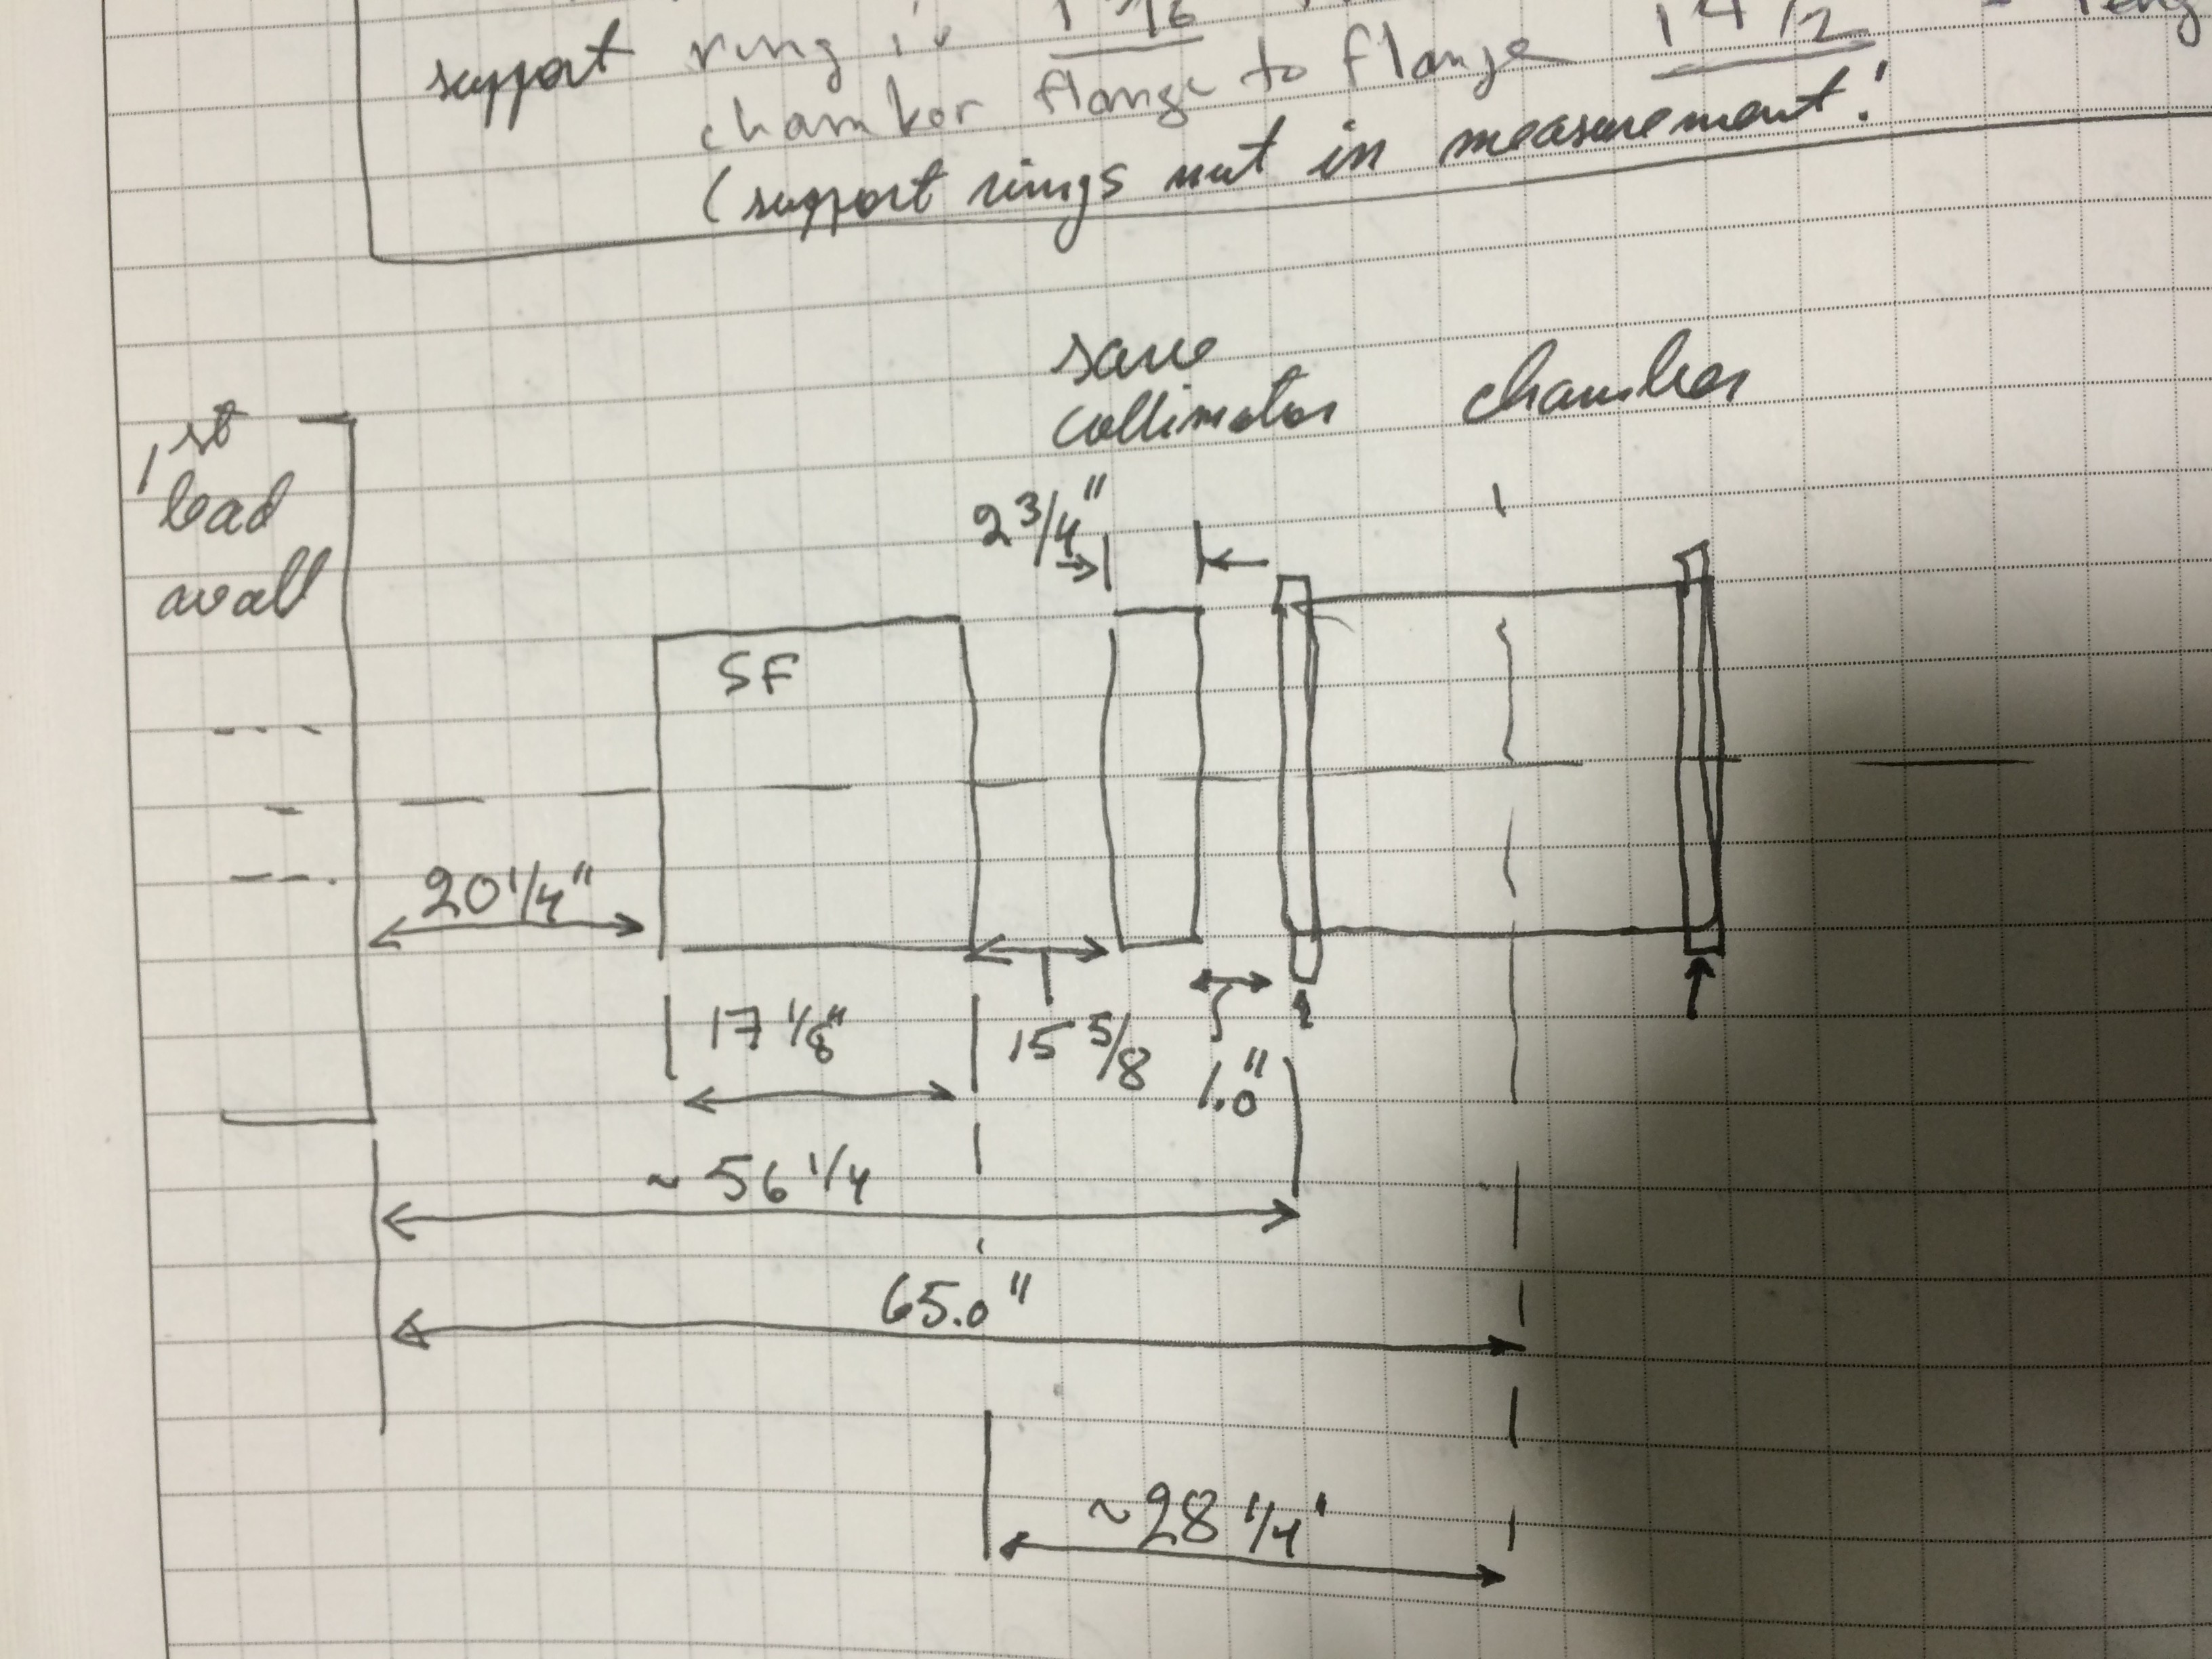 support ring is
chamber flange to flange 14 1/2
(support rings not in measurement!
save
collimator
chamber
1st
lead
wall
2 3/4"
SF
20 1/4"
17 1/8"
15 5/8
1.0"
~ 56 1/4
65.0"
~28 1/4'